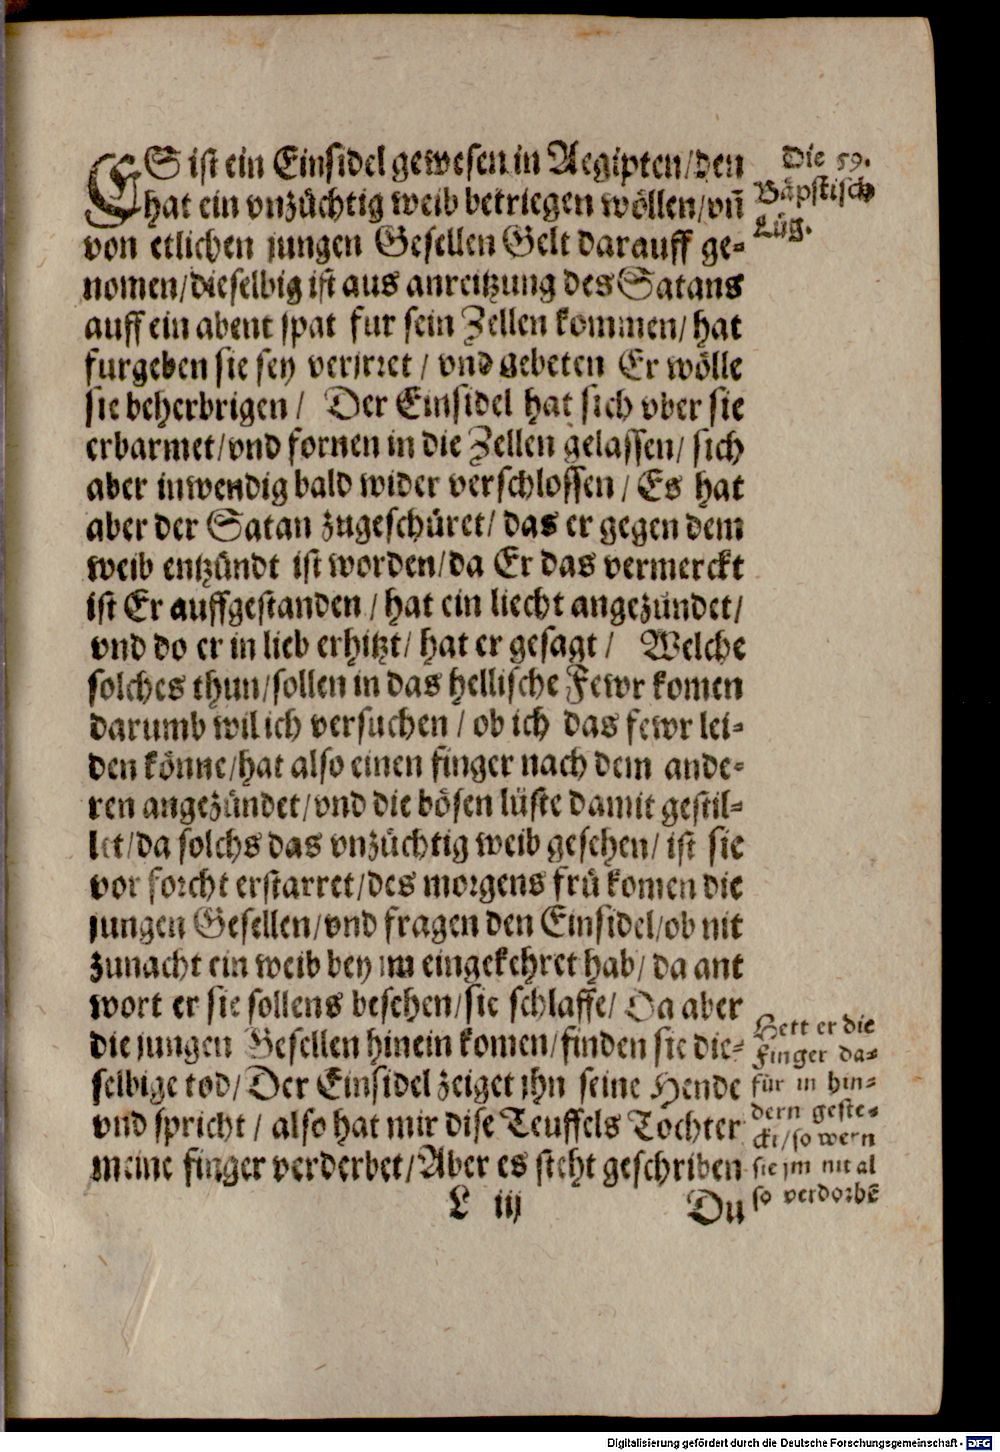 ES ist ein Einsidel gewesen in Aegipten/den
hat ein vnzüchtig weib betriegen wöllen/vñ
von etlichen jungen Gesellen Gelt darauff ge-
nomen/dieselbig ist aus anreitzung des Satans
auff ein abent spat fur sein Zellen kommen/hat
furgeben sie sey verirret/vnd gebeten Er wölle
sie beherbrigen/ Der Einsidel hat sich vber sie
erbarmet/vnd fornen in die Zellen gelassen/sich
aber inwendig bald wider verschlossen/Es hat
aber der Satan zugeschüret/das er gegen dem
weib entzündt ist worden/da Er das vermerckt
ist Er auffgestanden/hat ein liecht angezündet/
vnd do er in lieb erhitzt/hat er gesagt/ Welche
solches thun/sollen in das hellische Fewr komen
darumb wil ich versuchen/ob ich das fewr lei-
den könne/hat also einen finger nach dem ande-
ren angezündet/vnd die bösen lüste damit gestil-
let/da solchs das vnzüchtig weib gesehen/ist sie
vor forcht erstarret/des morgens frü komen die
jungen Gesellen/vnd fragen den Einsidel/ob nit
zunacht ein weib bey im eingekehret hab/da ant
wort er sie sollens besehen/sie schlaffe/Da aber
die jungen Gesellen hinein komen/finden sie die-
selbige tod/Der Einsidel zeiget ihn seine Hende
vnd spricht/also hat mir dise Teuffels Tochter
meine finger verderbet/Aber es steht geschriben
L iij
Du
Die 59.
Bäpstisch
Lüg.
Hett er die
Finger da-
für in hin-
dern geste-
ckt/so wern
sie jm nit al
so verdorbē
Digitalisierung gefördert durch die Deutsche Forschungsgemeinschaft - DFG